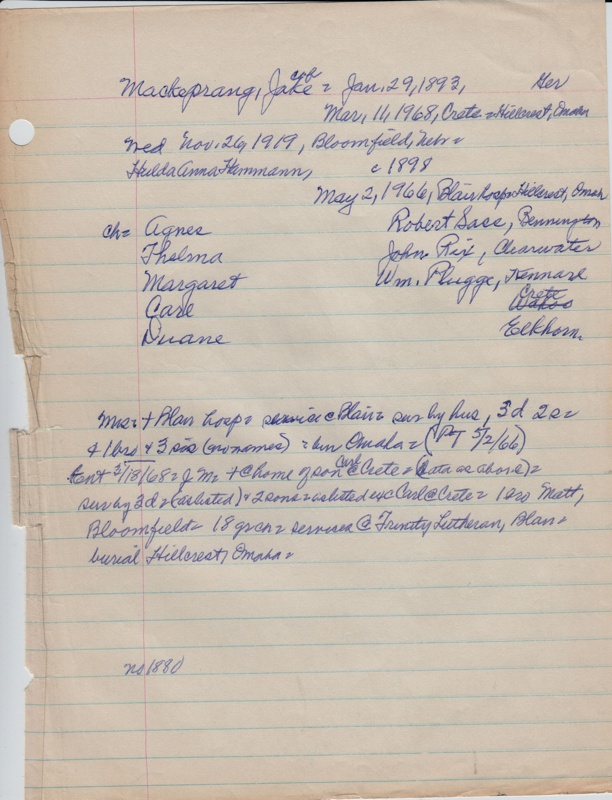 Mackeprang, Jake cob = Jan. 29, 1893, Ger
Mar, 11, 1968, Crete = Hillcrest, Omaha
Wed Nov. 26, 1919, Bloomfield, Nebr =
Hulda Anna Hammann, c 1898
May 2, 1966, Blair hosp = Hillcrest, Omah
ch = Agnes Robert Sass, Bennington
Thelma John Rix, Clearwater
Margaret Wm. Plugge, Kennard
Carl Crete Wahoo
Duane Elkhorn.
Mrs = + Blair hosp = service @ Blair = sur by hus, 3 d 2 s =
+ 1 bro + 3 sis (no names) = bur Omaha = (PT 5/2/66)
Ent 3/18/68 = J. M. + @ home of son Carl @ Crete = (data as above) =
sur by 3 d = (as listed) + 2 sons = as listed exc Carl @ Crete = 1 bro Matt,
Bloomfield = 18 grch = services @ Trinity Lutheran, Blair =
burial Hillcrest, Omaha =
no 1880